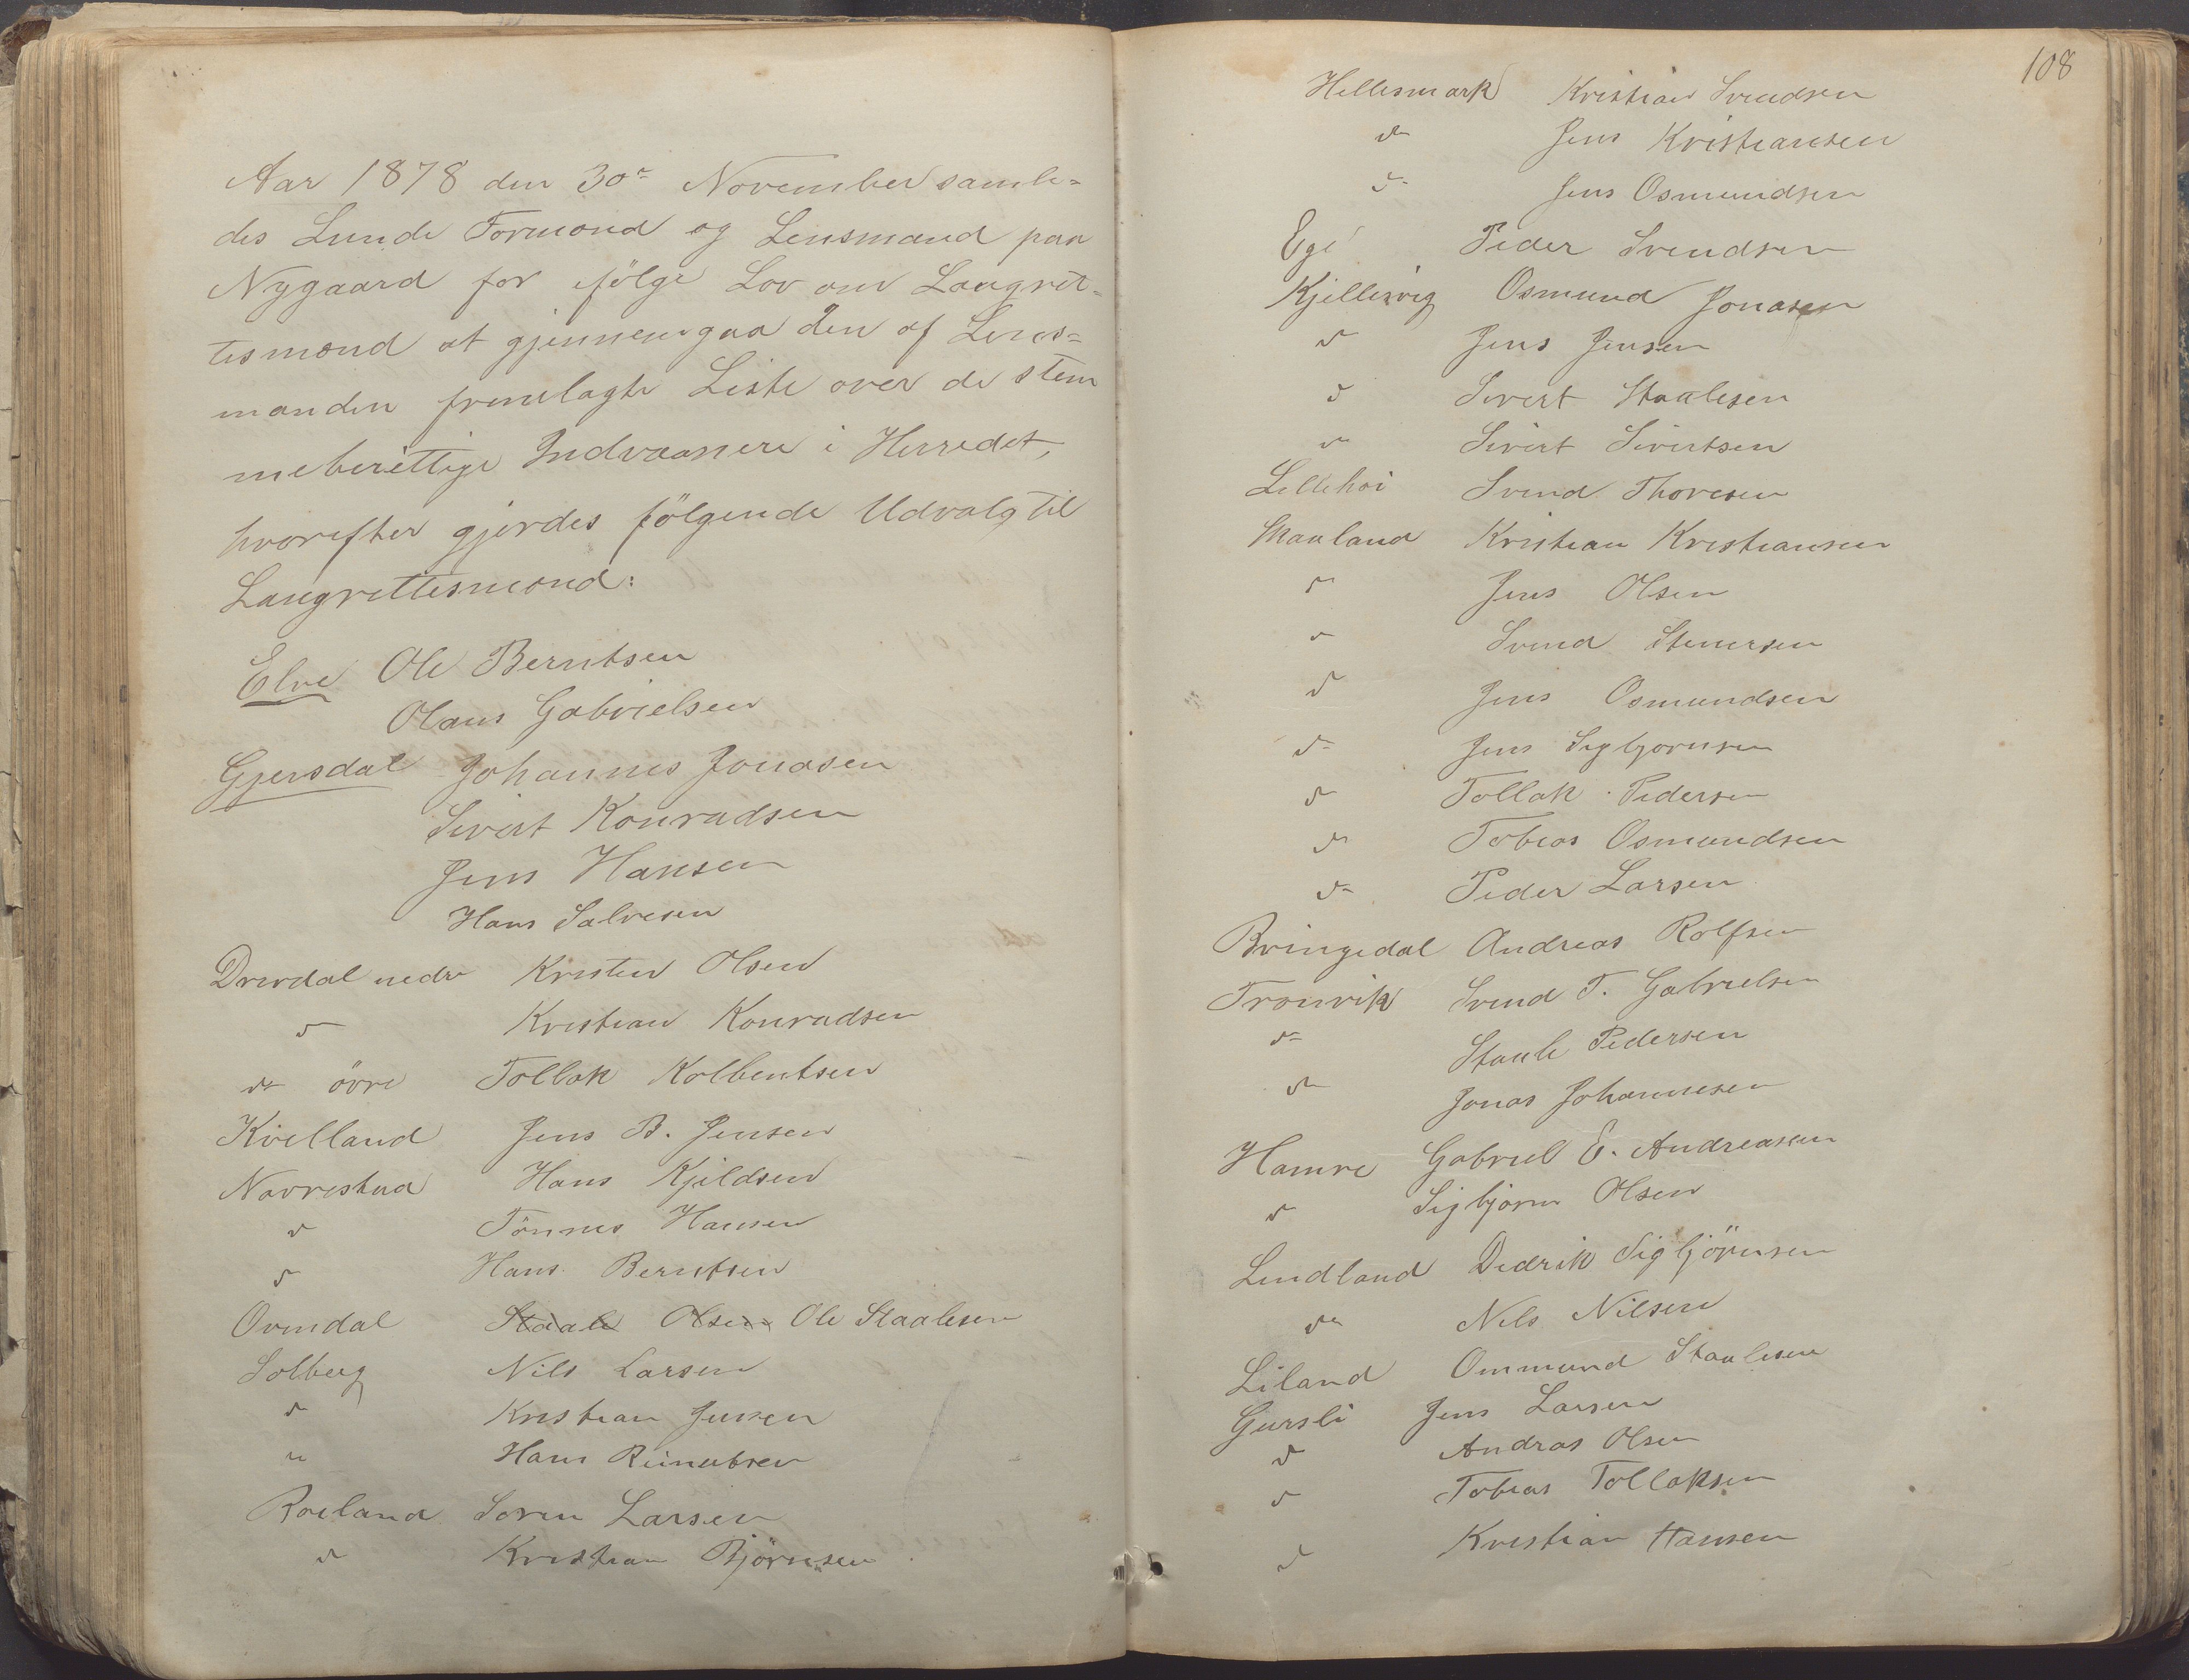 Aar 1878 den 30te November samle=
des Lunde Formænd og Lensmand paa
Nygaard for ifölge Lov om Laugret=
tesmænd at gjennemgaa den af Lens=
manden fremlagte Liste over de stem
meberettige Indvaanere i Herredet,
hvorefter gjordes fölgende Udvalg til
Laugrettesmænd:
Elve Ole Berntsen
Olaus Gabrielsen
Gjersdal Johannes Jonasen
Sivert Konradsen
Jens Hansen
Hans Salvesen
Drivdal nedr Kristen Olsen
do Kristian Konradsen
do övre Tollak Kolbentsen
Kvelland Jens B. Jensen
Navrestad Hans Kjeldsen
do Tönnes Hansen
do Hans Berntsen
Ovendal Staale Olsen Ole Staalesen
Solberg Nils Larsen
do Kristian Jensen
" Hans Reinertsen
Roeland Soren Larsen
do Kristian Björnsen
108
Hellesmark Kristian Svendsen
do Jens Kristiansen
do Jens Osmundsen
Ege Peder Svendsen
Kjellesvig Osmund Jonasen
do Jens Jensen
do Sivert Staalesen
do Sivert Sivertsen
Lillehoi Svend Thoresen
Maaland Kristian Kristiansen
do Jens Olsen
do Svend Stenersen
do Jens Osmundsen
do Jens Sigbjornsen
do Tollak Pedersen
do Tobias Osmundsen
do Peder Larsen
Bringedal Andreas Rolfsen
Tronvik Svend T. Gabrielsen
do Staale Pedersen
do Jonas Johannesen
Hamre Gabriel E. Andreasen
do Sigbjorn Olsen
Lindland Dedrik Sigbjörnsen
do Nils Nilsen
Liland Ommund Staalesen
Gursli Jens Larsen
do Andras Olsen
do Tobias Tollaksen
do Kristian Hansen